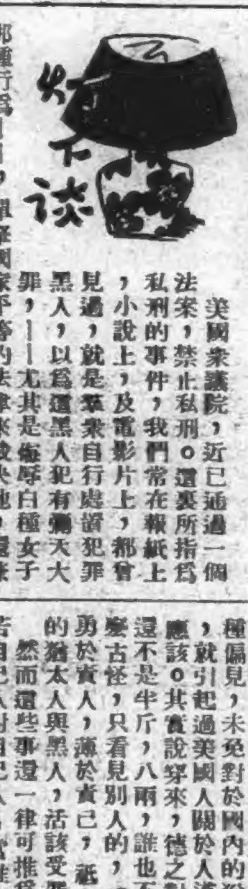 灯下談
美國衆議院,近已通過一個
法案,禁止私刑。這裏所指爲
私刑的事件,我們常在報紙上
,小說上,及電影片上,都曾
見過,就是羣衆自行處置犯罪
黑人,以爲這黑人犯有彌天大
罪,——尤其是侮辱白種女子
那種行爲——,國家平等的法律來裁決他,還
種偏見,未免對於國內的
,就引起過美國人關於人
應該。其實說穿來,德之
還不是半斤,八兩,誰也
麼古怪,只看見別人的,
勇於責人,薄於責己,祇
的猶太人與黑人,活該受
然而這些事還一律可推
若自己人對自己人